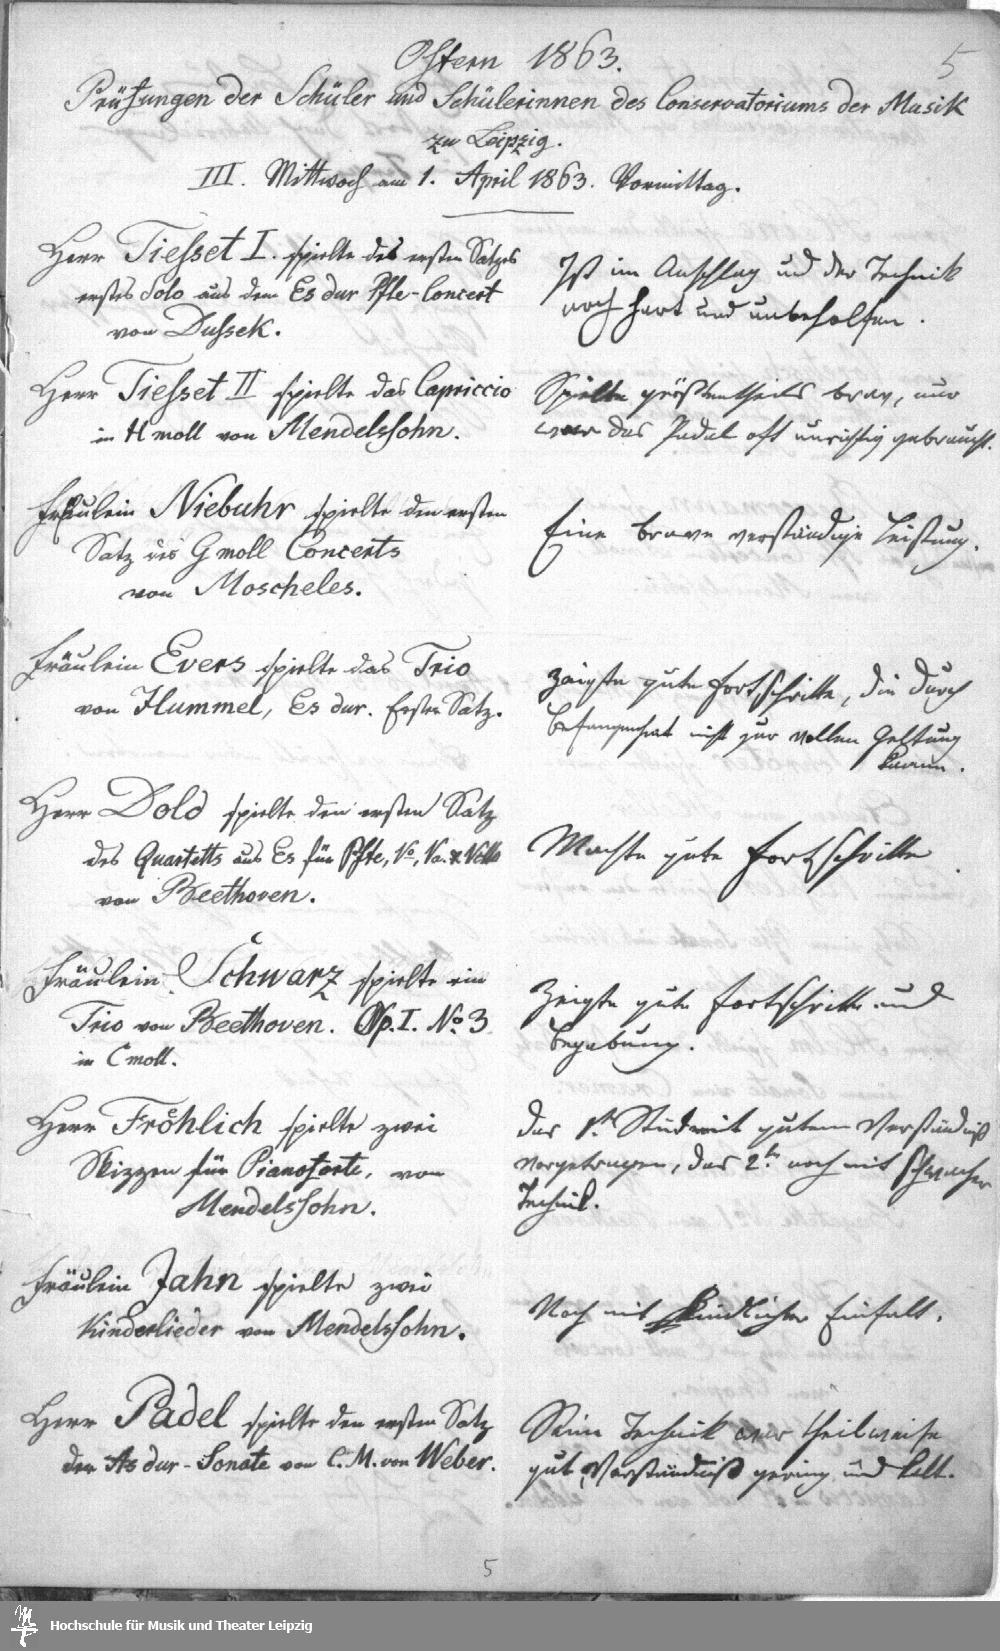 5
Ostern 1863.
Prüfungen der Schüler und Schülerinnen des Conservatoriums der Musik
zu Leipzig.
III. Mittwoch am 1. April 1863. Vormittag.
Herr Tiesset I. spielte des ersten Satzes
erstes Solo aus dem Es dur Pfte-Concert
von Dussek.
Ist im Anschlag und der Technik
noch hart und unbeholfen.
Herr Tiesset II spielte das Capriccio
in H moll von Mendelssohn.
Spielte größtentheils brav, nur
war das Pedal oft unrichtig gebraucht.
Fräulein Niebuhr spielte den ersten
Satz des G moll Concerts
von Moscheles.
Eine brave verständige Leistung.
Fräulein Evers spielte das Trio
von Hummel, Es dur. Erster Satz.
Zeigte gute Fortschritte, die durch
Befangenheit nicht zur vollen Geltung
kamen.
Herr Dold spielte den ersten Satz
des Quartetts aus Es für Pfte, Vo, Va. & Vello
von Beethoven.
Machte gute Fortschritte.
Fräulein Schwarz spielte ein
Trio von Beethoven. Op. I. No. 3
in C moll.
Zeigte gute Fortschritte und
Begabung.
Herr Fröhlich spielte zwei
Skizzen für Pianoforte, von
Mendelssohn.
Das 1te Stück mit gutem Verständniß
vorgetragen, das 2te noch mit schwacher
Technik.
Fräulein Jahn spielte zwei
Kinderlieder von Mendelssohn.
Noch mit kindlicher Einfalt.
Herr Padel spielte den ersten Satz
der As dur-Sonate von C. M. von Weber.
Seine Technik war theilweise
gut, Verständniß gering und kalt.
5
Hochschule für Musik und Theater Leipzig